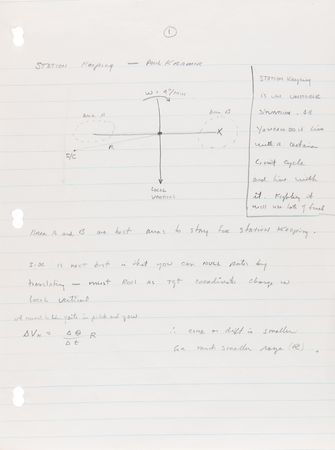 1
STATION Keeping — Paul Kramer
W = 4°/min
Area A
Area B
X
R
S/C
LOCAL
VERTICAL
STATION Keeping
is an unstable
situation. So
you can do it
with a certain
limit cycle
and live with
it. Fighting it
will use lots of fuel
Area A and B are best areas to stay for STATION Keeping.
Side is next best in that you can null rates by
translating — must Roll as TGT coordinate change in
local vertical
rates in pitch and yaw
ΔVx = Δθ/Δt R
∴ error or drift is smaller
for much smaller range (R).